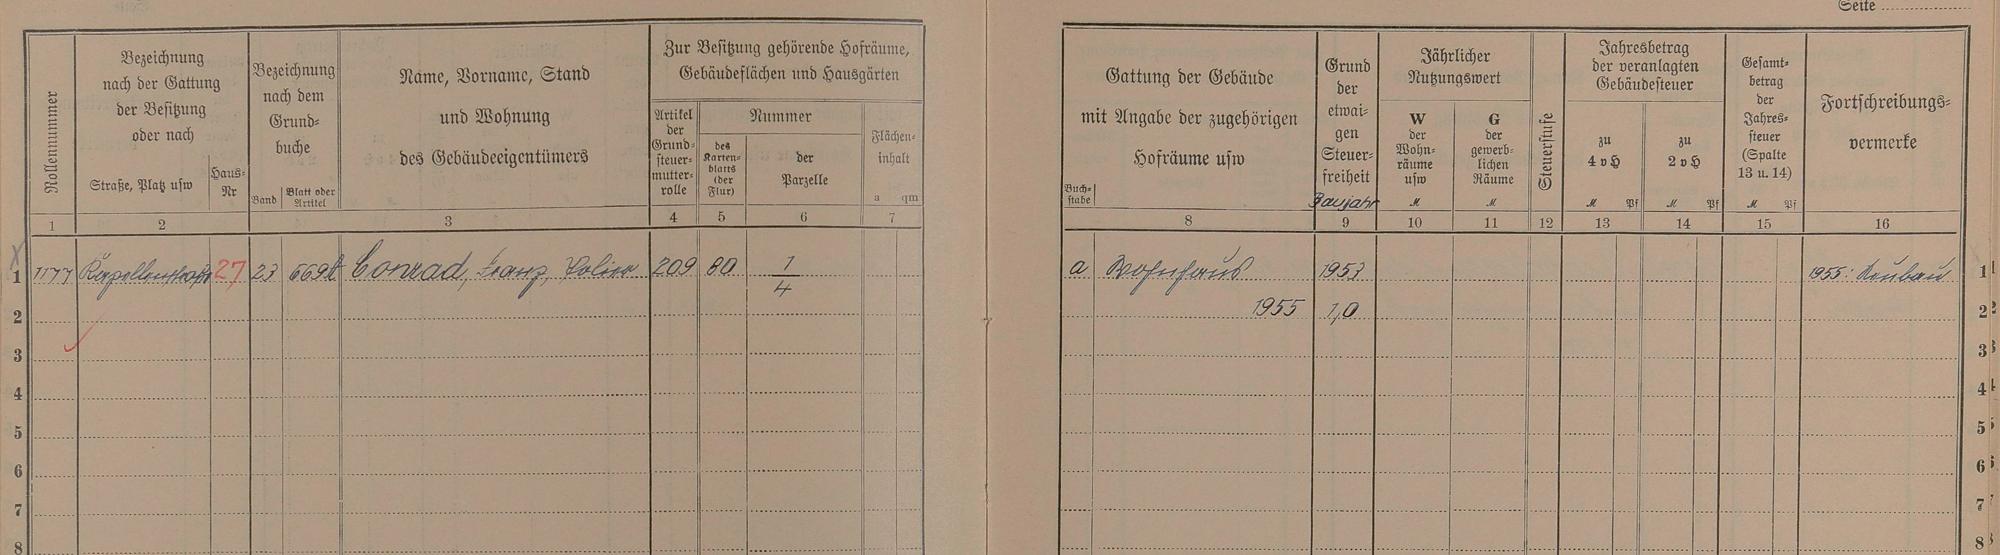 Seite
Rollennummer
Bezeichnung
nach der Gattung
der Besitzung
oder nach
Straße, Platz usw
Haus-
Nr
Bezeichnung
nach dem
Grund-
buche
Band
Blatt oder
Artikel
Name, Vorname, Stand
und Wohnung
des Gebäudeeigentümers
Zur Besitzung gehörende Hofräume,
Gebäudeflächen und Hausgärten
Artikel
der
Grund-
steuer-
mutter-
rolle
Nummer
des
Karten-
blatts
(der
Flur)
der
Parzelle
Flächen-
inhalt
a qm
1 2 3 4 5 6 7
1 1177 Kapellenstraße 27 23 669 Conrad, Franz, 209 80 1/4
2
3
4
5
6
7
8
Buch-
stabe
Gattung der Gebäude
mit Angabe der zugehörigen
Hofräume usw
Grund
der
etwai-
gen
Steuer-
freiheit
Baujahr
Jährlicher
Nutzungswert
W
der
Wohn-
räume
usw
M
G
der
gewerb-
lichen
Räume
M
Steuerstufe
Jahresbetrag
der veranlagten
Gebäudesteuer
zu
4 v H
M Pf
zu
2 v H
M Pf
Gesamt-
betrag
der
Jahres-
steuer
(Spalte
13 u. 14)
M Pf
Fortschreibungs-
vermerke
8 9 10 11 12 13 14 15 16
a Wohnhaus 1953 1955: Neubau 1
1955 1,0 2
3
4
5
6
7
8